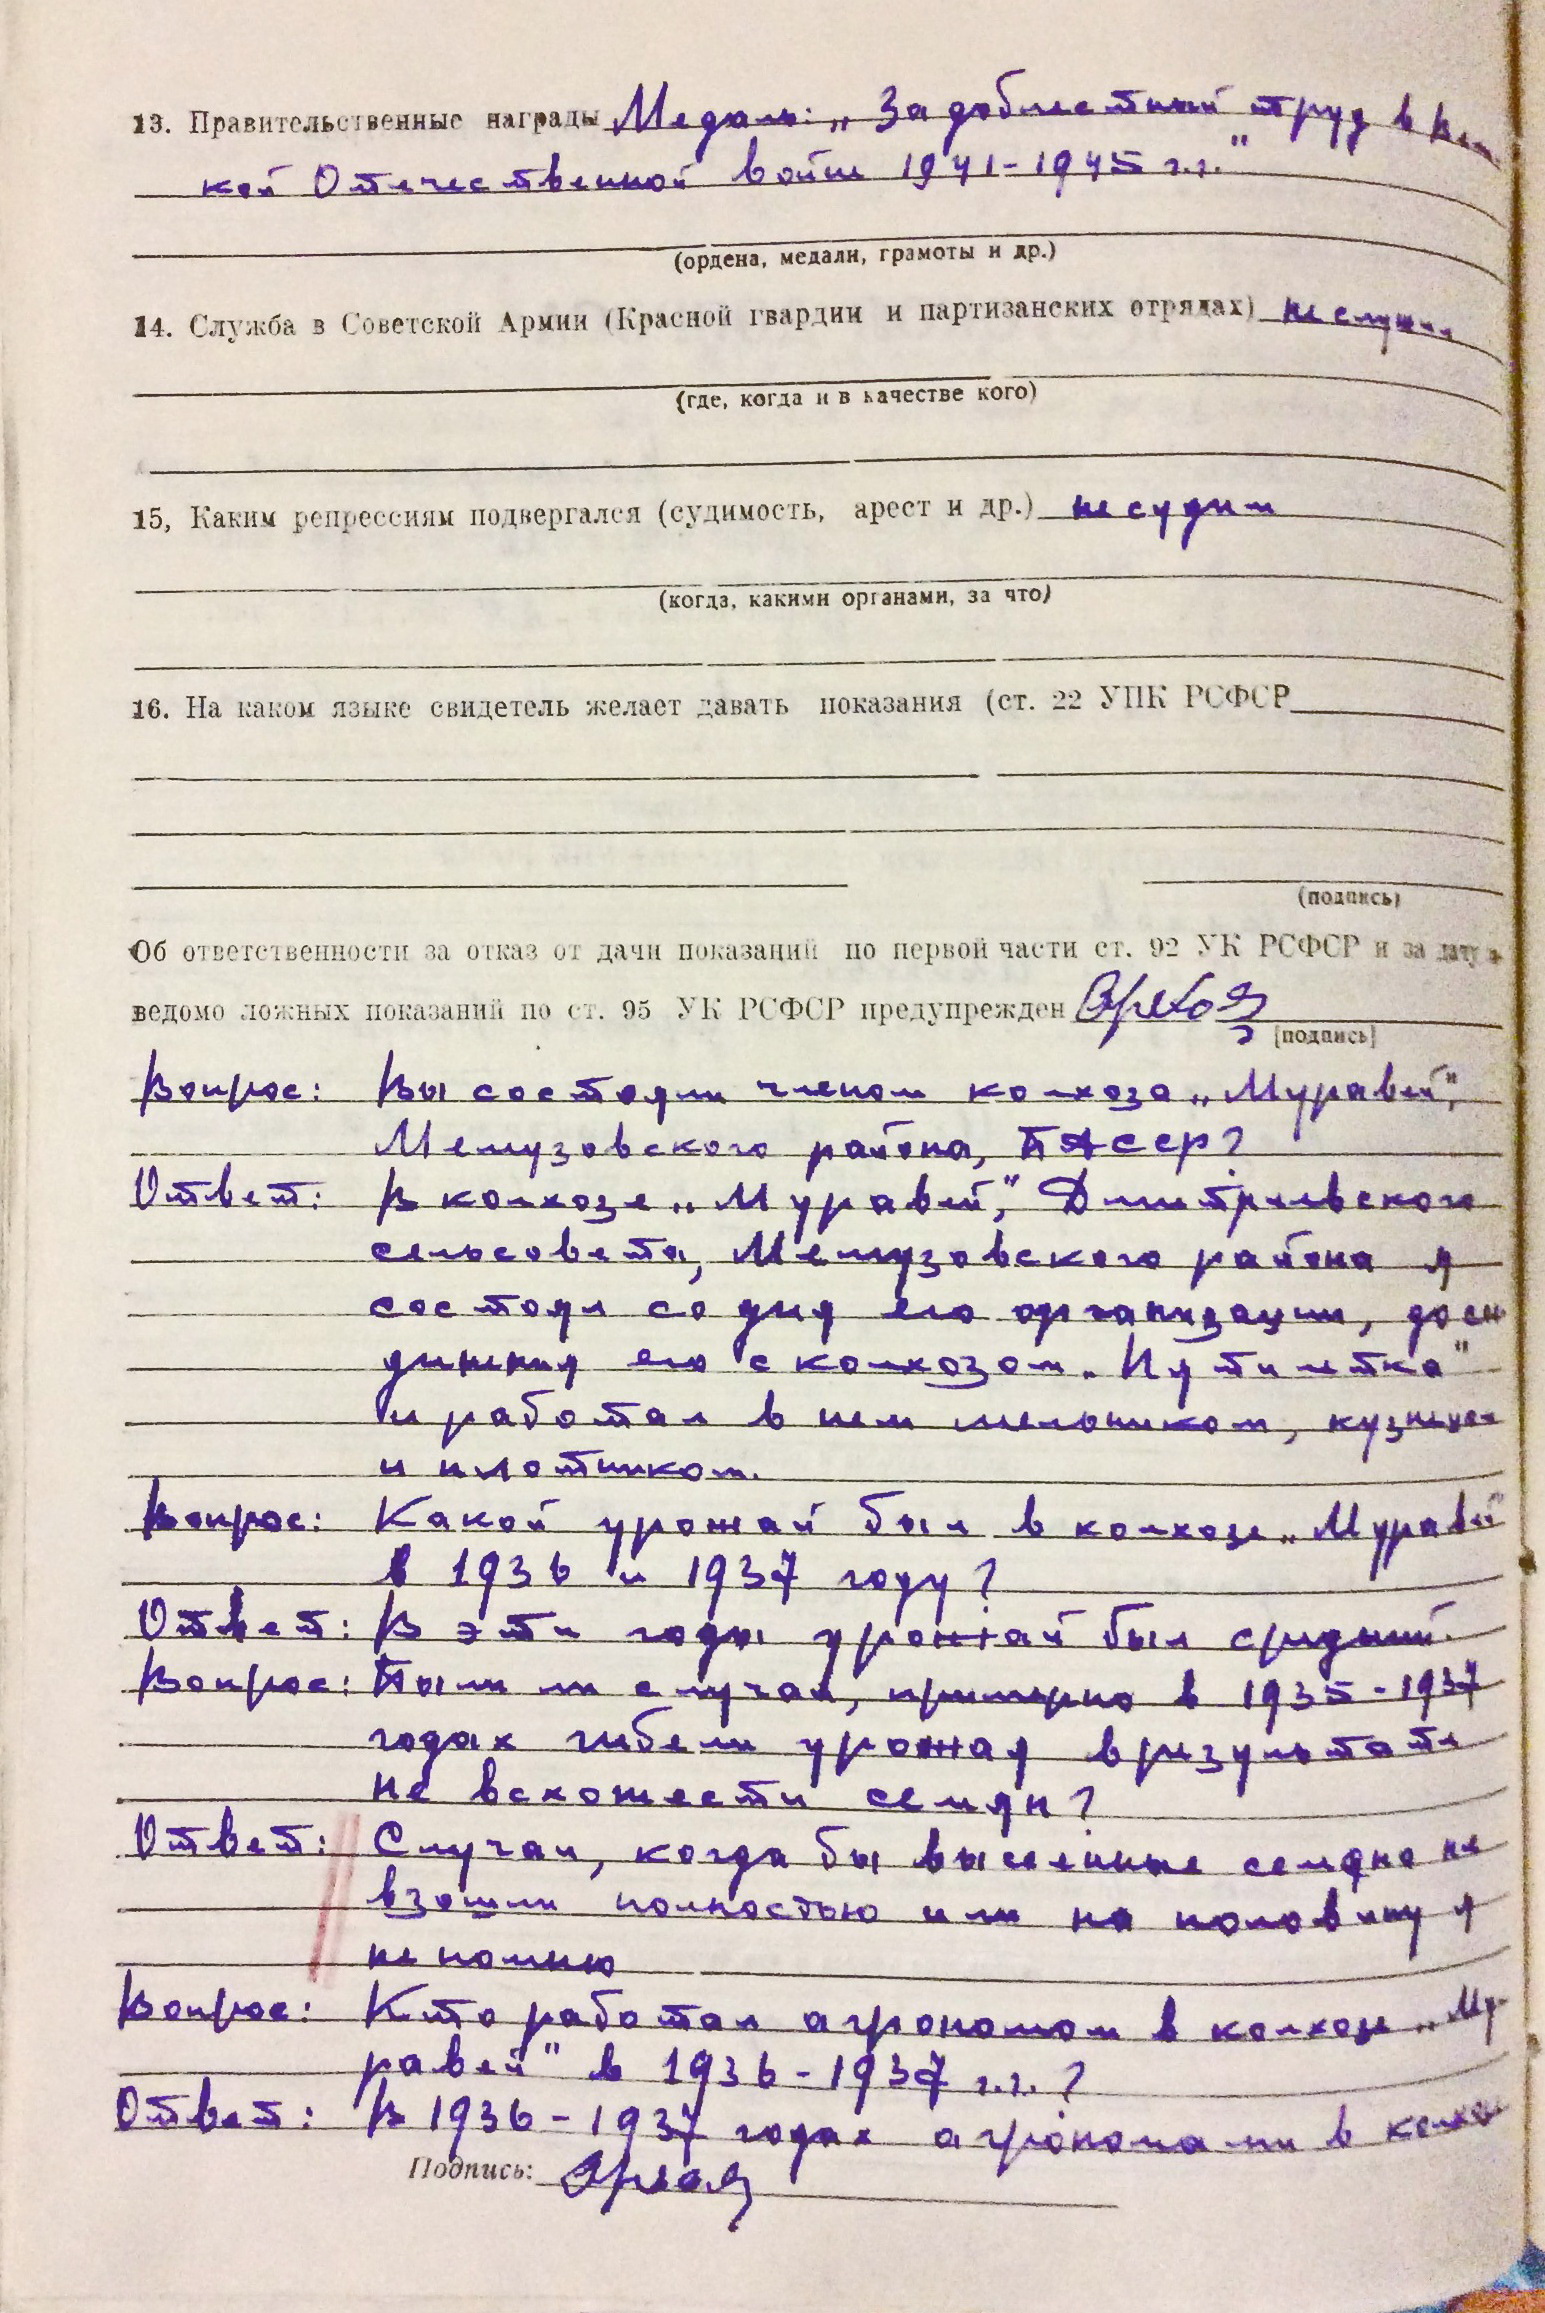 13. Правительственные награды Медаль: „За доблестный труд в Вели-
кой Отечественной войне 1941-1945 г.г."
(ордена, медали, грамоты и др.)
14. Служба в Советской Армии (Красной гвардии и партизанских отрядах) не служил
(где, когда и в качестве кого)
15, Каким репрессиям подвергался (судимость, арест и др.) не судим
(когда, какими органами, за что)
16. На каком языке свидетель желает давать показания (ст. 22 УПК РСФСР
(подпись)
Об ответственности за отказ от дачи показаний по первой части ст. 92 УК РСФСР и за дачу за-
ведомо ложных показаний по ст. 95 УК РСФСР предупрежден
[подпись]
Вопрос: Вы состояли членом колхоза „Муравей",
Мелеузовского района, БАССР?
Ответ: В колхозе „Муравей", Дмитриевского
сельсовета, Мелузовского района я
состоял со дня его организации, до сое
динения его с колхозом „Пятилетка"
и работал в нем мельником, кузнецом
и плотником.
Вопрос: Какой урожай был в колхозе „Муравей"
в 1936 и 1937 году?
Ответ: В эти годы урожай был средний.
Вопрос: Были ли случаи, примерно в 1935-1937
годах гибели урожая в результате
не всхожести семян?
Ответ: Случаи, когда бы высеенные семена не
взошли полностью или на половину я
не помню
Вопрос: Кто работал агрономом в колхозе „Му-
равей" в 1936-1937 г.г.?
Ответ: В 1936-1937 годах агрономами в колхозе
Подпись: